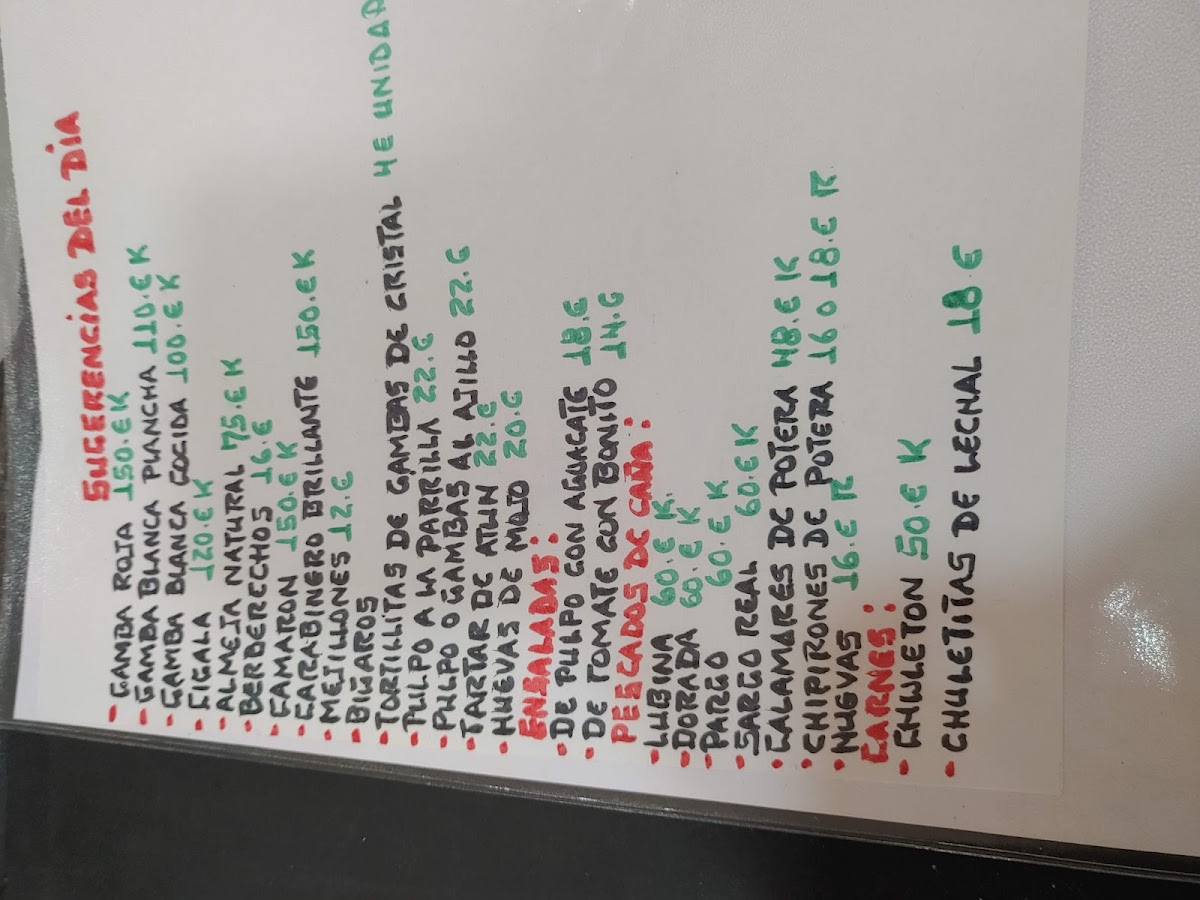 SUGERENCIAS DEL DIA
• GAMBA ROJA 150.€K
• GAMBA BLANCA PLANCHA 110.€K
• GAMBA BLANCA COCIDA 100.€K
• CIGALA 120.€K
• ALMEJA NATURAL 75.€K
• BERBERECHOS 16.€
• CAMARON 150.€K
• CARABINERO BRILLANTE 150.€K
• MEJILLONES 12.€
• BIGAROS
• TORTILLITAS DE GAMBAS DE CRISTAL 4€ UNIDAD
• PULPO A LA PARRILLA 22.€
• PULPO O GAMBAS AL AJILLO 22.€
• TARTAR DE ATUN 22.€
• HUEVAS DE MOJO 20.€
ENSALADAS:
• DE PULPO CON AGUACATE 18.€
• DE TOMATE CON BONITO 14.€
PESCADOS DE CAÑA:
• LUBINA 60.€K.
• DORADA 60.€K
• PARGO 60.€K
• SARGO REAL 60.€K
• CALAMARES DE POTERA 48.€K
• CHIPIRONES DE POTERA 16 O 18.€ R
• HUEVAS 16.€ R
CARNES:
• CHULETON 50.€K
• CHULETITAS DE LECHAL 18.€